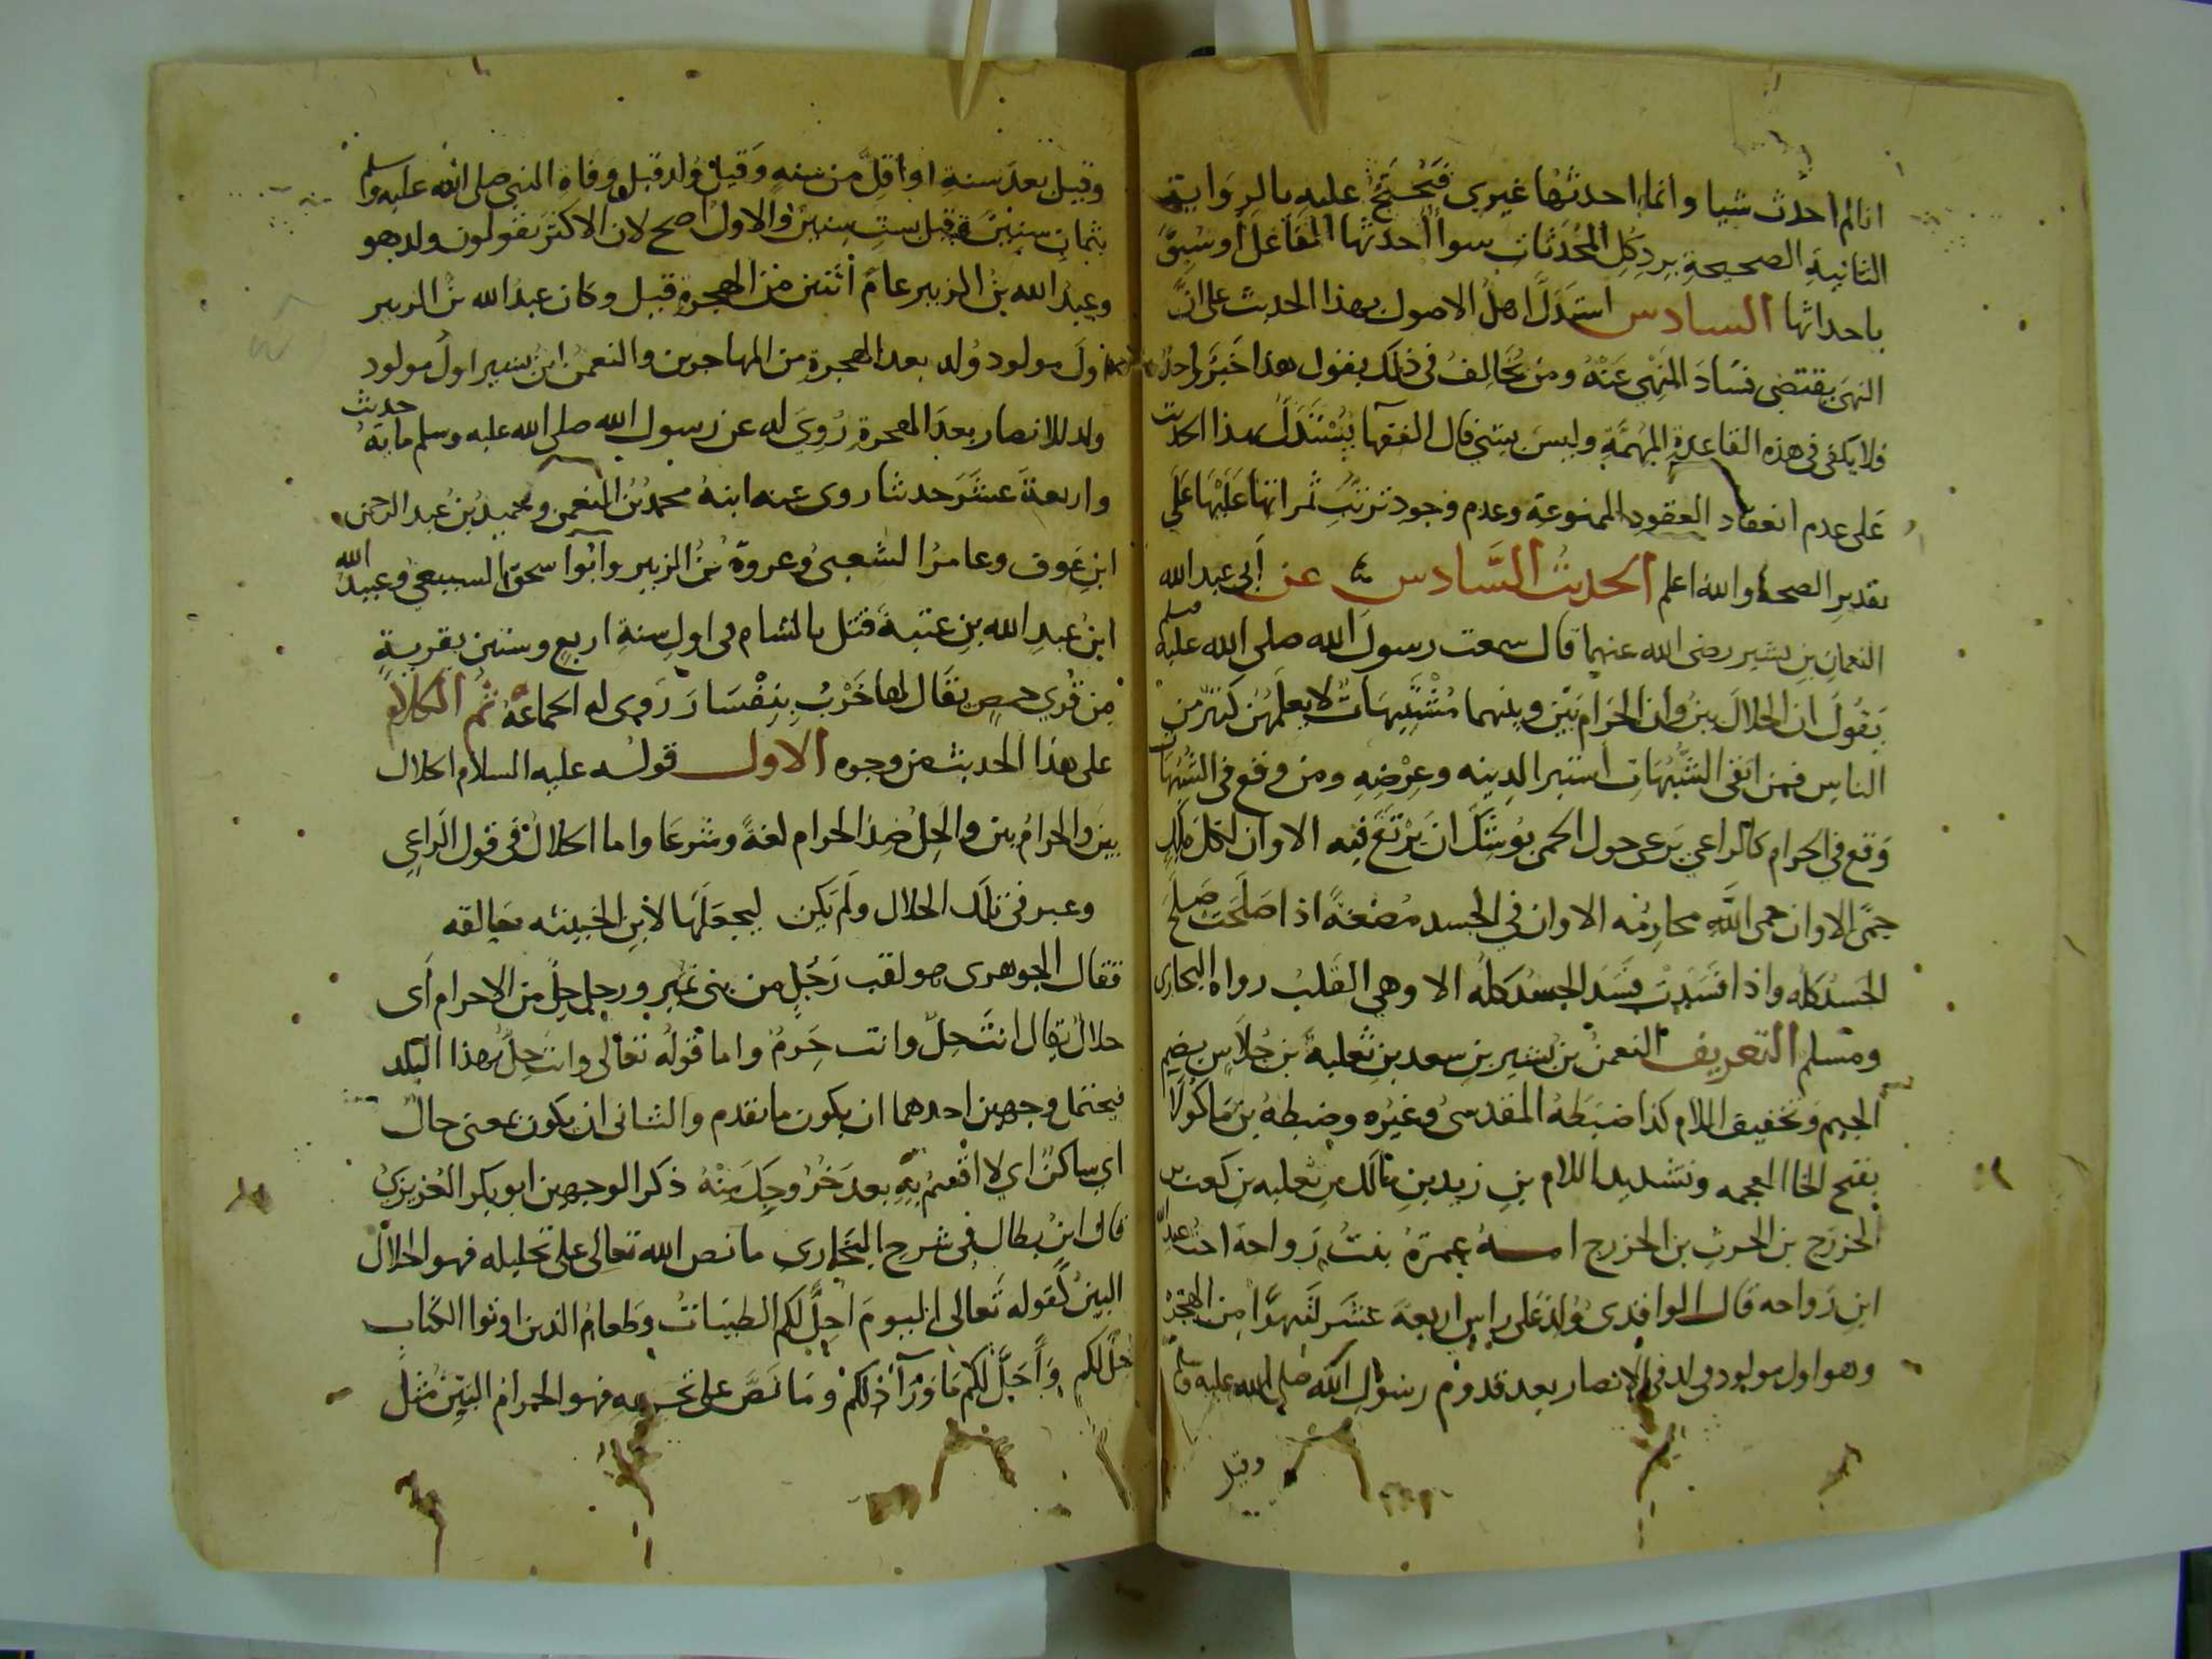 انا لم احدث شيا وانما احدثها غيري فنحتج عليه بالرواية
الثانية الصحيحة برد كل المحدثات سوا أحدثها الفاعل او سبق
باحداثها السادس استدل اهل الاصول بهذا الحديث على ان
النهى يقتضى فساد المنهي عنه ومن يخالف في ذلك يقول هذا خبر واحد
فلا يكفى في هذه القاعدة المهمة وليس بشي قال الفقها يستدل بهذا الحديث
على عدم انعقاد العقود الممنوعة وعدم وجود ترتب ثمراتها عليها على
تقدير الصحة والله اعلم الحديث السادس عن أبى عبد الله
النعمان بن بشير رضى الله عنهما قال سمعت رسول الله صلى الله عليه وسلم
يقول ان الحلال بين وان الحرام بين وبينهما مشتبهات لا يعلمهن كثير من
الناس فمن اتقى الشبهات استبرا لدينه وعرضه ومن وقع في الشبهات
وقع في الحرام كالراعي يرعى حول الحمى يوشك ان يرتع فيه الا وان لكل ملك
حمى الا وان حمى الله محارمه الا وان في الجسد مضغة اذا صلحت صلح
الجسد كله واذا فسدت فسد الجسد كله الا وهي القلب رواه البخارى
ومسلم التعريف النعمن بن بشير بن سعد بن ثعلبة بن جلاس بضم
الجيم وتخفيف اللام كذا ضبطه المقدسى وغيره وضبطه بن ماكولا
بفتح الخا المعجمه وتشديد اللام بن زيد بن مالك بن ثعلبه بن كعب بن
الخزرج بن الحرث بن الخزرج امه عمرة بنت رواحة اخت عبد الله
ابن رواحه قال الواقدى ولد على راس اربعة عشر شهرا من الهجرة
وهو اول مولود ولد في الانصار بعد قدوم رسول الله صلى الله عليه وسلم
وقيل
وقيل بعد سنة او أقل من سنه وقيل ولد قبل وفاة النبي صلى الله عليه وسلم
بثمان سنين وقيل بست سنين والاول اصح لان الاكثر يقولون ولد هو
وعبد الله بن الزبير عام اثنين من الهجرة قيل وكان عبد الله بن الزبير
اول مولود ولد بعد الهجرة من المهاجرين والنعمن ابن بشير اول مولود
ولد للانصار بعد الهجرة روي له عن رسول الله صلى الله عليه وسلم مايه حديث
واربعة عشر حديثا روى عنه ابنه محمد بن النعمن وحميد بن عبد الرحمن
ابن عوف وعامر الشعبى وعروة بن الزبير وابوا سحق السبيعي وعبيد الله
ابن عبد الله بن عتبة قتل بالشام في اول سنة اربع وستين بقرية
من قري حمص يقال لها خرب بنفسار روى له الجماعة ثم الكلام
على هذا الحديث من وجوه الاول قوله عليه السلام الحلال
بين والحرام بين والحل ضد الحرام لغة وشرعا واما الحلال في قول الراعي
وعير في تلك الحلال ولم يكن ليجعلها لابن الخبيثه خالقه
فقال الجوهرى هو لقب رجل من بنى نمير ورجل حل من الاحرام أى
حلال يقال انت حل وانت حرم واما قوله تعالى وانت حل بهذا البلد
فيحتمل وجهين احدهما ان يكون ما تقدم والثانى ان يكون بمعنى حال
اي ساكن اي لا اقسم به بعد خروجك منه ذكر الوجهين ابو بكر العزيزي
قال ابن بطال في شرح البخارى ما نص الله تعالى على تحليله فهو الحلال
البين كقوله تعالى اليوم احل لكم الطيبات وطعام الذين اوتوا الكتاب
حل لكم وأحل لكم ما ورآ ذلكم وما نص على تحريمه فهو الحرام البين مثل